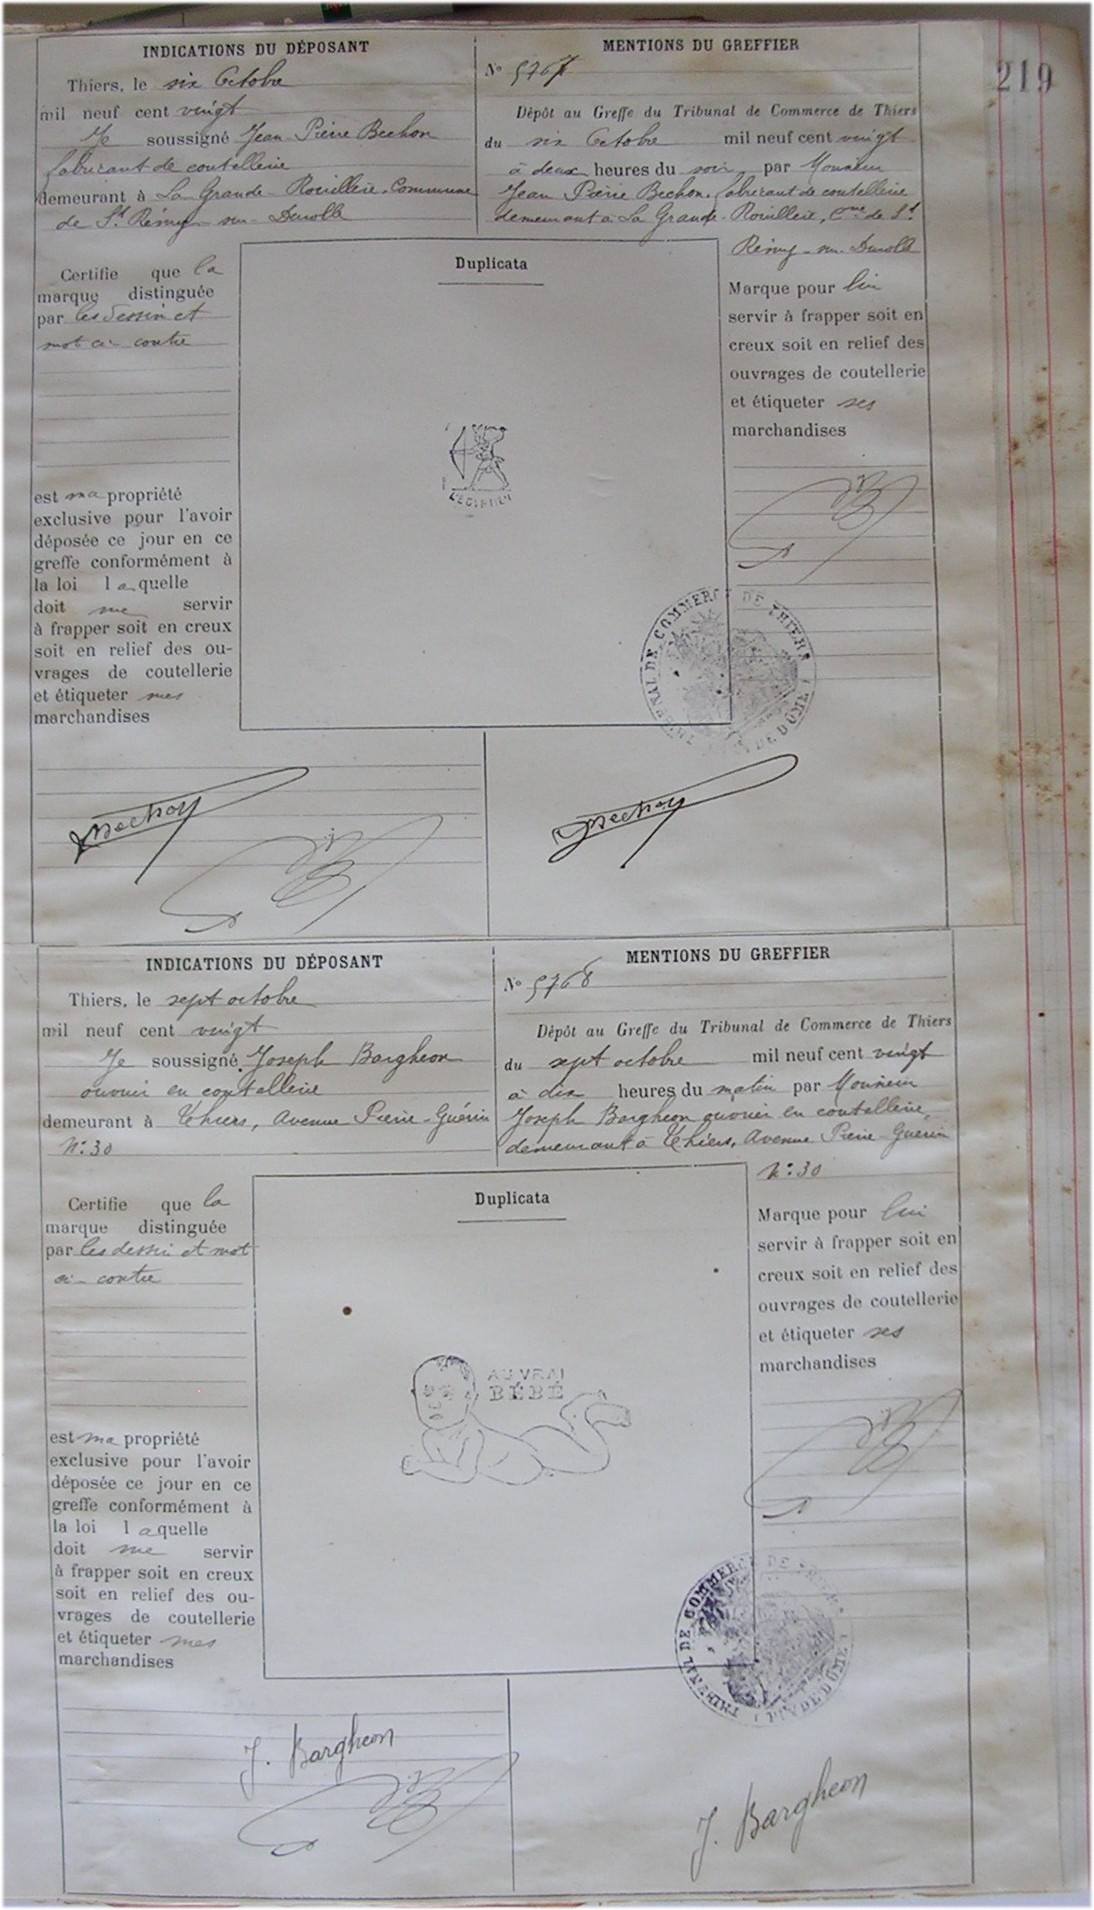 219
INDICATIONS DU DÉPOSANT
Thiers, le six Octobre
mil neuf cent vingt
Je soussigné Jean Pierre Bechon
fabricant de coutellerie
demeurant à La Grande Rouillere, Commune
de St Rémy-sur-Durolle
MENTIONS DU GREFFIER
No 5767
Dépôt au Greffe du Tribunal de Commerce de Thiers
du six Octobre mil neuf cent vingt
à deux heures du soir par Monsieur
Jean Pierre Bechon, fabricant de coutellerie
demeurant à La Grande-Rouillere, Cne de St
Rémy-sur-Durolle
Certifie que la
marque distinguée
par les dessin et
mot ci-contre
est ma propriété
exclusive pour l'avoir
déposée ce jour en ce
greffe conformément à
la loi laquelle
doit me servir
à frapper soit en creux
soit en relief des ou-
vrages de coutellerie
et étiqueter mes
marchandises
Duplicata
Marque pour lui
servir à frapper soit en
creux soit en relief des
ouvrages de coutellerie
et étiqueter ses
marchandises
TRIBUNAL DE COMMERCE DE THIERS
PUY DE DÔME
Bechon
Bechon
INDICATIONS DU DÉPOSANT
Thiers, le sept octobre
mil neuf cent vingt
Je soussigné, Joseph Bargheon
ouvrier en coutellerie
demeurant à Thiers, Avenue Pierre-Guérin
No: 30
MENTIONS DU GREFFIER
No 5768
Dépôt au Greffe du Tribunal de Commerce de Thiers
du sept octobre mil neuf cent vingt
à dix heures du matin par Monsieur
Joseph Bargheon ouvrier en coutellerie,
demeurant à Thiers, Avenue Pierre Guerin
No: 30
Certifie que la
marque distinguée
par les dessin et mot
ci-contre
est ma propriété
exclusive pour l'avoir
déposée ce jour en ce
greffe conformément à
la loi laquelle
doit me servir
à frapper soit en creux
soit en relief des ou-
vrages de coutellerie
et étiqueter mes
marchandises
Duplicata
AU VRAI
BÉBÉ
Marque pour lui
servir à frapper soit en
creux soit en relief des
ouvrages de coutellerie
et étiqueter ses
marchandises
TRIBUNAL DE COMMERCE DE THIERS
PUY DE DÔME
J. Bargheon
J. Bargheon